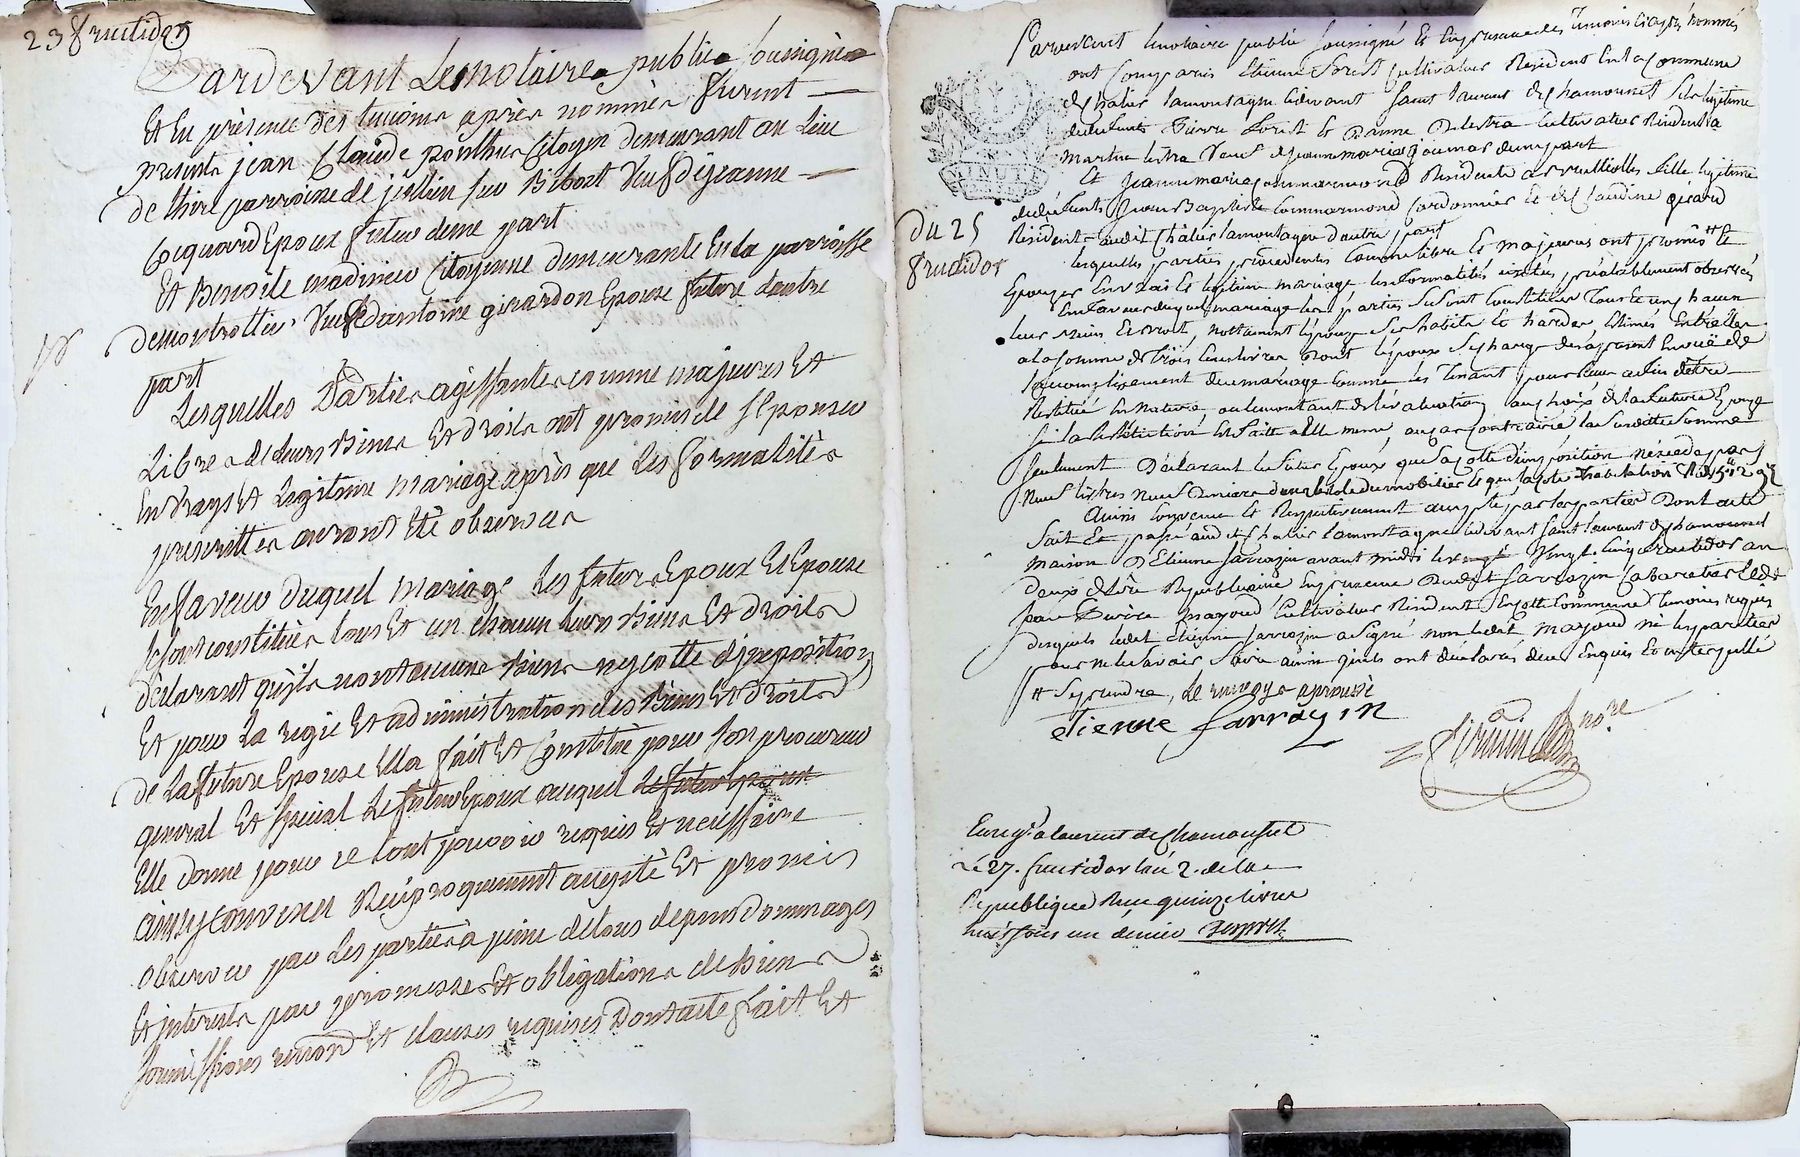 23 fructidor
Pardevant Les notaires publics soussignés
Et En présence des temoins après nommés furent
présents jean Claude ponthus Citoyen demeurant au Lieu
de thiré parroisse de jullin sur Bibost Veuf de jeanne
Coquard Epoux futur d'une part
Et Benoite madinier Citoyenne demeurante En la parroisse
demontrottier Veuve d'antoine girardon Epouse future dautre
part
Lesquelles Parties agissantes comme majeures Et
Libres de Leurs Biens Et droits ont promis de s'Epouser
En vrays Et Legitime mariage après que Les formalités
prescrittes auront été observées
En faveur duquel mariage Les futurs Epoux Et Epouse
se sont constitués tous Et un chacun Leurs Biens Et droits
déclarant qu'ils nont aucuns Biens ny cotte d'jmposition
Et pour La regie Et administration des Biens Et droits
de La future Epouse Elle fait Et Constitue pour son procureur
general Et special Le futur Epoux auquel Le futur Epoux
Elle donne pour ce tout pouvoir requis Et nécessaire
ainsy convenu Reciproquement accepté Et promis
observer par Les parties à peine de tous depens dommages
Et jnterets par promesses Et obligations de biens
soumissions renond Et clauses requises Dont acte fait Et
Pardevant le notaire public soussigné Et En presence des temoins cy après nommés
ont Comparus Etienne Forest Cultivateur Résident En la Commune
de Chalier lamontagne cidevant saint laurent de chamousset fils légitime
de defunts Pierre Forest Et Dame Cultivateur Résident a
Et jeanne marie Commarmond Résidente a Bruilliolles fille legitime
de défunts jean Baptiste Commarmond Cordonnier Et de Claudine gérard
Du 25
fructidor
Résidents audit Chalier lamontagne d'autre part
lesquelles parties procedantes Comme libres Et majeures ont promis # de
Epouzer En vrai Et legitime mariage les formalités civiles préalablement observées
En faveur duquel mariage les parties se sont Constituées Tous Et un chacun
leurs Biens Et droits, nottamment l'épouze ses habits Et hardes Estimés Entr'elles
a la somme de Trois Cens livres dont l'époux se charge dès a present En vuë de
l'accomplissement du mariage Comme les Tenant pour ceux afin d'etre
Restitué En nature ou le montant de l'évaluation au choix de la future Epouze
si la Restitution Est faitte a Elle meme, au cas Contraire la susditte somme
seulement Déclarant les futurs Epoux que sa Cotte d'imposition n'éxcede pas
Ainsi Convenu Et Respectivement accepté par les parties Dont acte
fait Et passé audit Chalier lamontagne cidevant saint laurent de chamousset
maison D'Etienne Sarrazin avant midi le Vingt Cinq fructidor an
deux de l'ère Républicaine En presence Dudit Sarrazin Cabaretier Et de
Pierre mazoud Cultivateur Résident En cette Commune Temoins requis
desquels ledit Etienne Sarrazin a signé non ledit mazoud ni les parties
pour ne le savoir faire ainsi qu'ils ont déclarés de ce Enquis Et interpellé
# se prendre, le renvoy approuvé
etienne sarrazin
nore
MINUTE
Enregé a laurent de Chamousset
Le 27. fructidor l'an 2. de la
Republique Reçu quinze livres
huit sous un denier